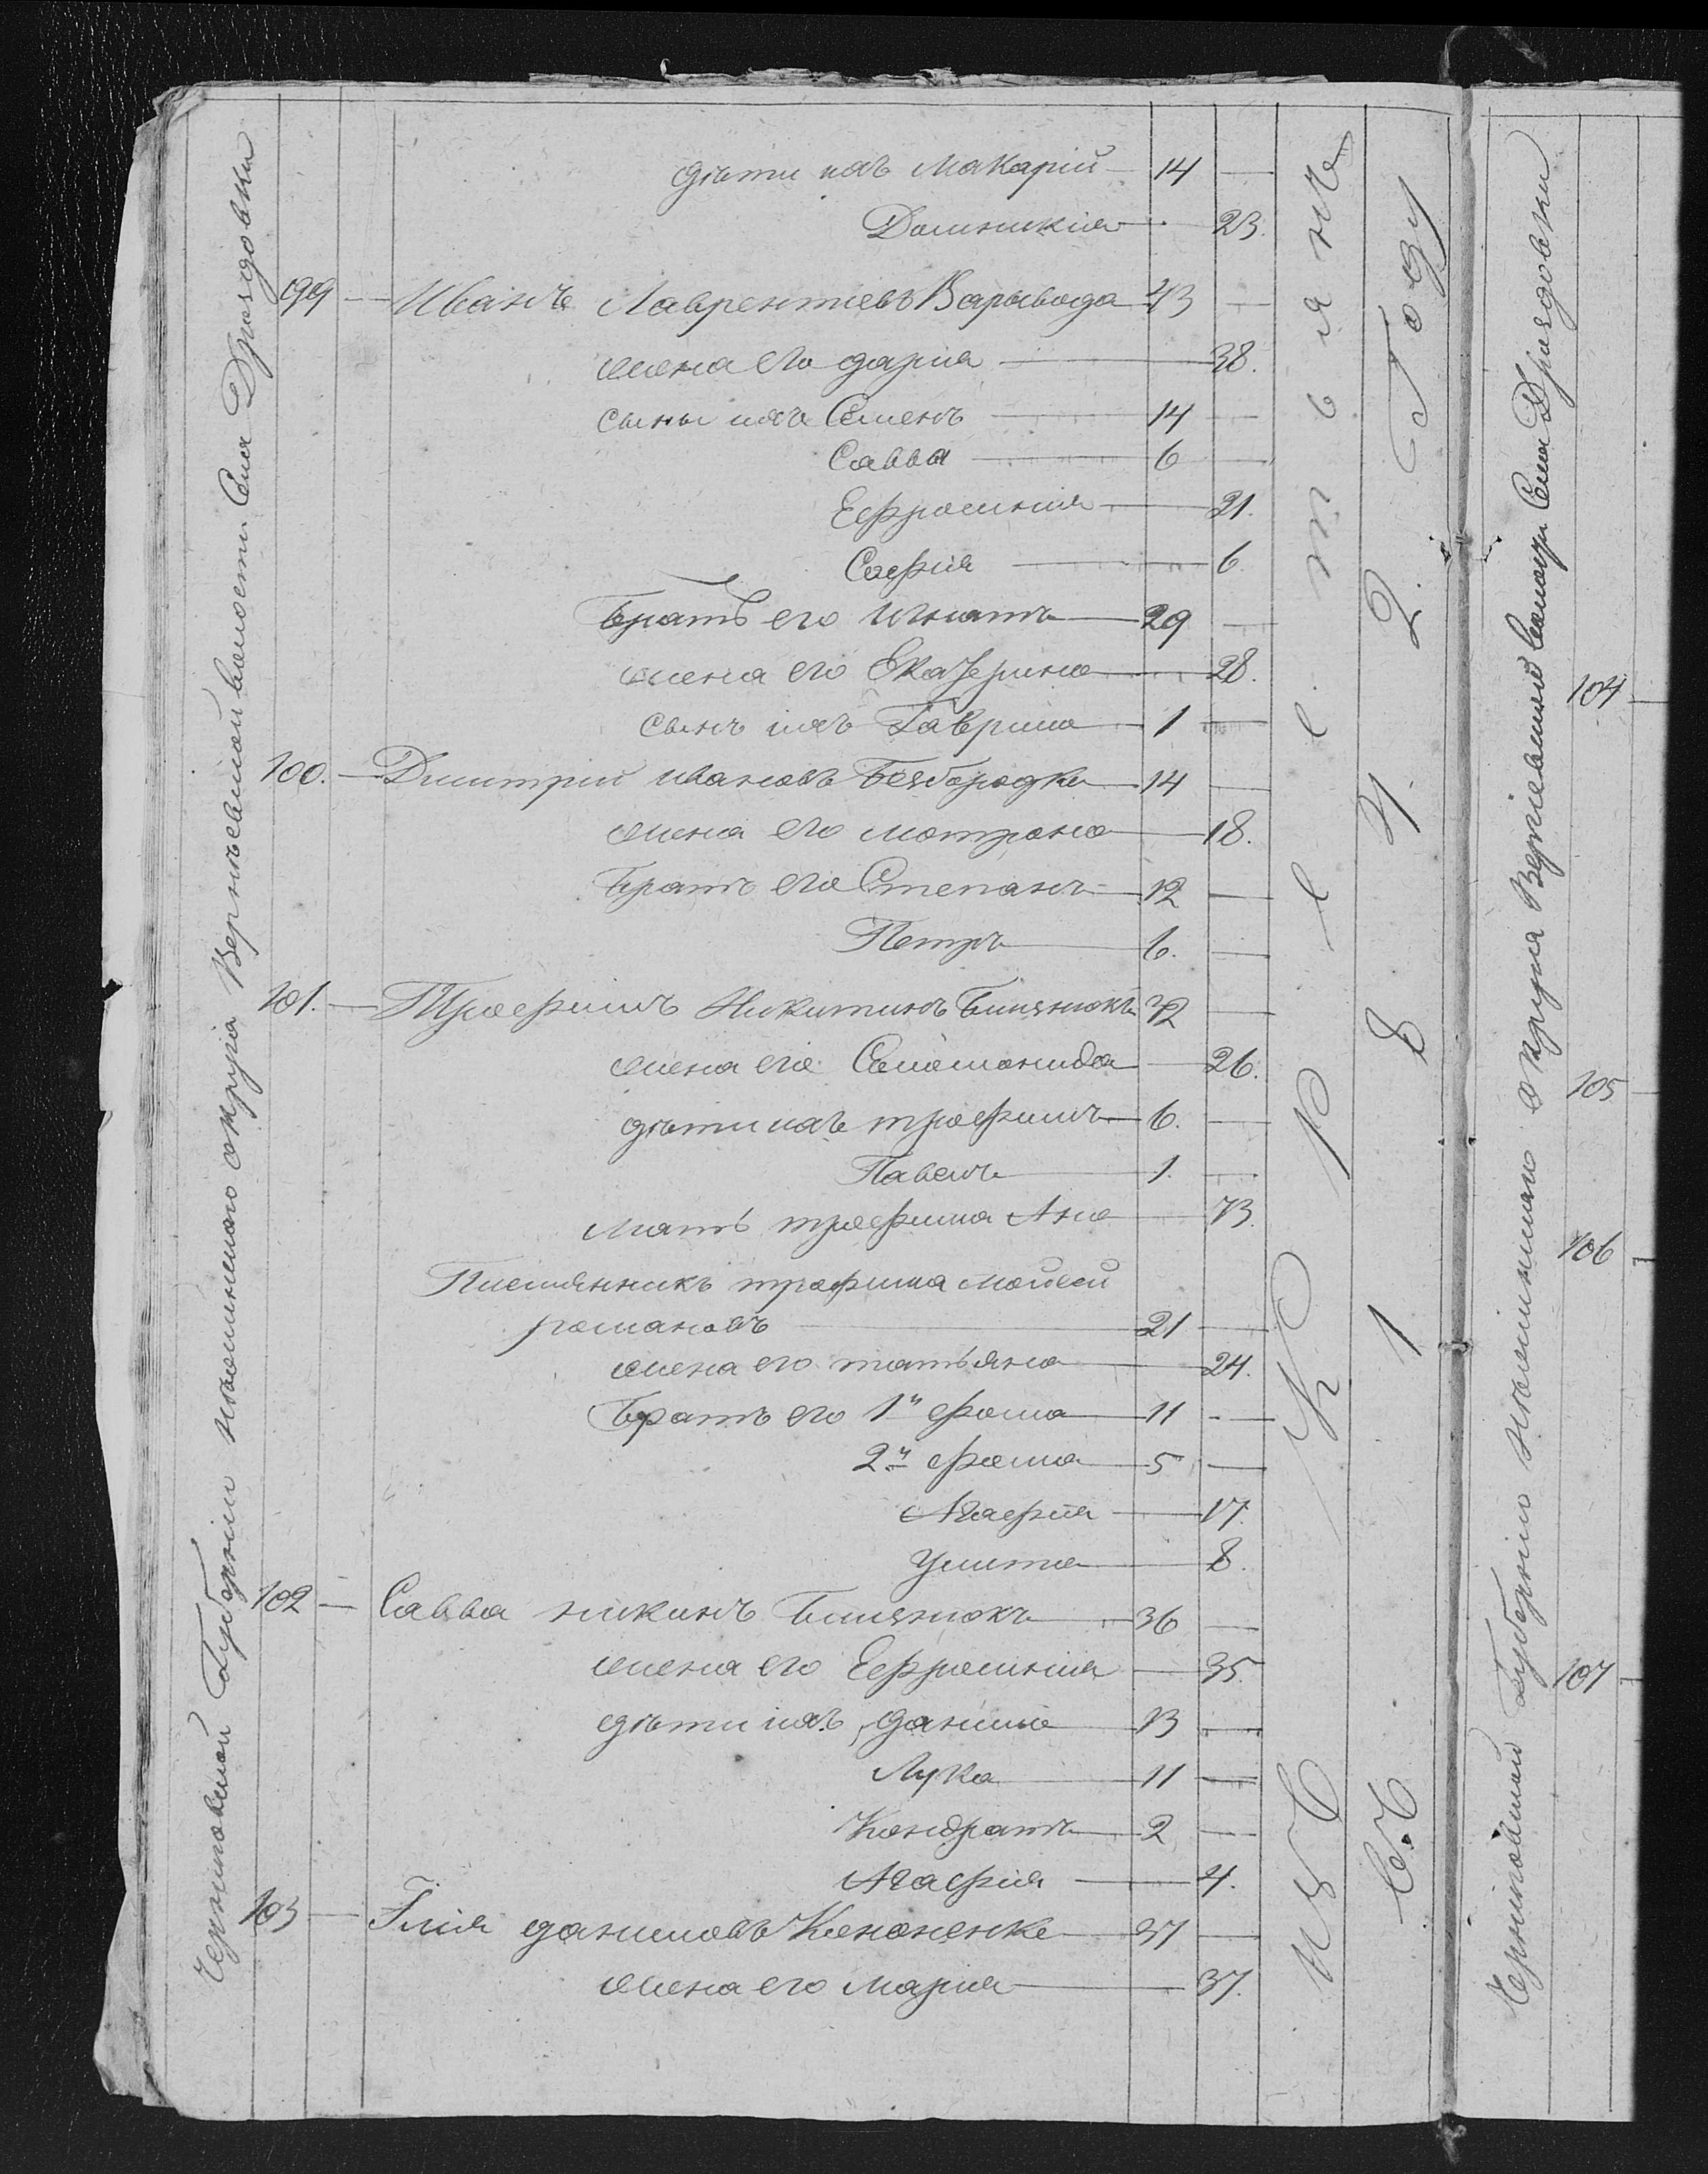 Черниговской Губерніи нѣжинскаго округа Вертіевской волости Села Дроздовки
дѣти ихъ Макарій — 14 —
Домникія — 23.
99 — Иванъ Лаврентіевъ Варивода 43 —
жена его дарія — 38.
сыны ихъ Семенъ — 14 —
Савва — 6 —
Ефросинія — 21.
Софія — 6
Братъ его Игнатъ — 29 —
жена его Екатерина — 28.
сынъ ихъ Гаврило — 1 —
100. — Дмитрій ивановъ Безбородко — 14 —
жена его мотрона — 18.
Братъ его Степанъ — 12 —
Петръ — 6. —
101. — Трофимъ Никитинъ 32 —
жена его Соломонида — 26.
дѣти ихъ трофимъ — 6. —
Павелъ — 1. —
Мать трофима Ана — 73.
Племянникъ трофима мойсей
романовъ — 21 —
жена его татьяна — 24.
Братъ его 1й фома — 11 —
2й фома — 5 —
Агафія — 17.
Улита — 8.
102 — Савва никинъ — 36 —
жена его Ефросинія — 35.
дѣти ихъ данило — 13 —
Лука — 11 —
Кондратъ — 2 —
Агафія — 4.
103 — Илія даниловъ Кононенко — 37 —
жена его марія — 37.
изъ крестьянъ
Съ 18 Году
Черниговской Губерніи нѣжинскаго округа Вертіевской волости Села Дроздовки
104 —
105 —
106 —
107 —